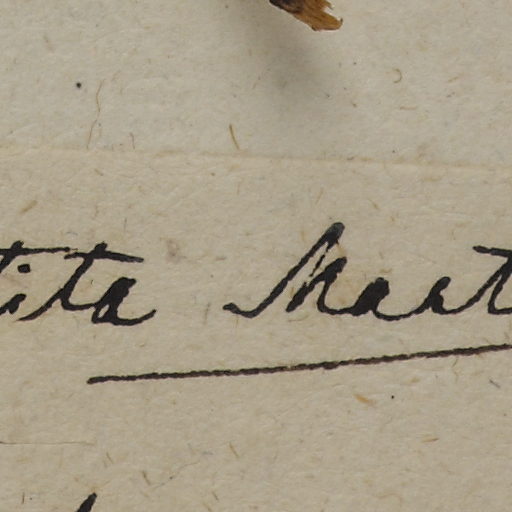 tita Mart